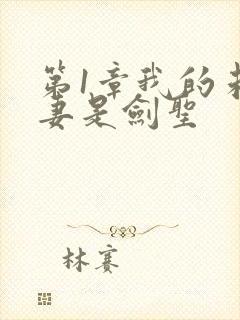 第1章我的未
妻是劍聖
林賽